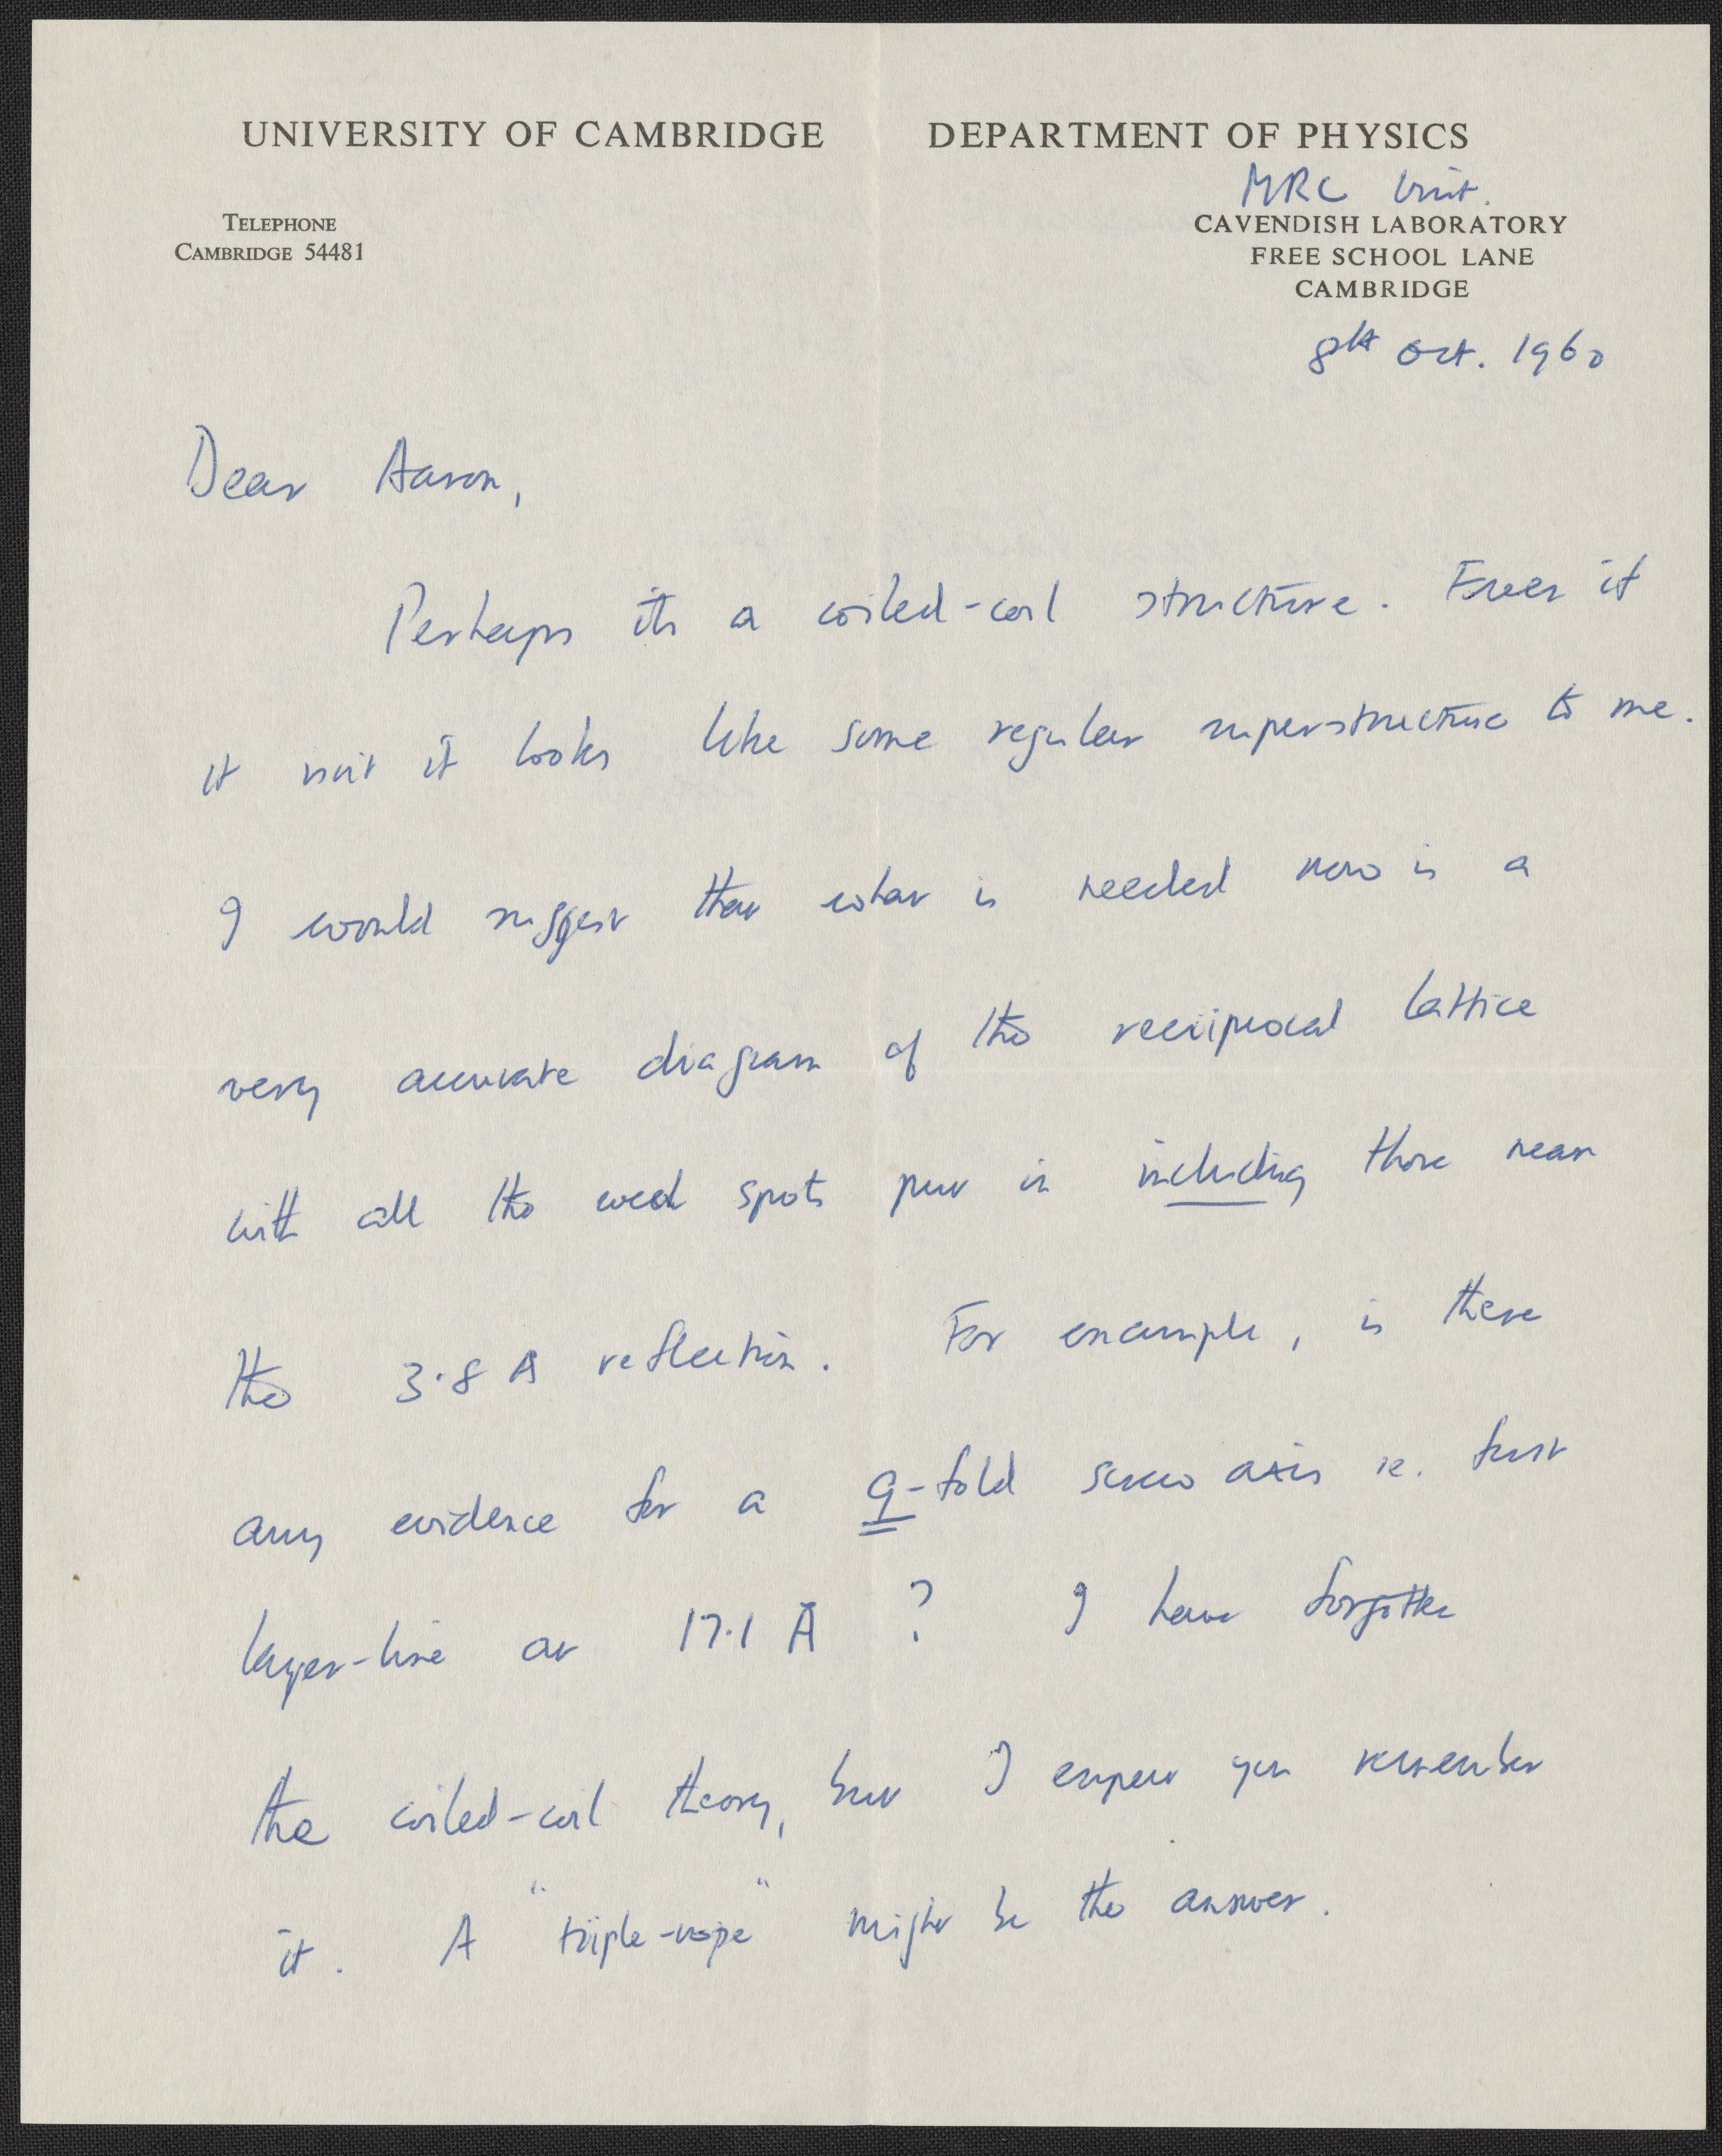 UNIVERSITY OF CAMBRIDGE DEPARTMENT OF PHYSICS
MRC Unit.
TELEPHONE
CAMBRIDGE 54481
CAVENDISH LABORATORY
FREE SCHOOL LANE
CAMBRIDGE
8th Oct. 1960
Dear Aaron,
Perhaps its a coiled-coil structure. Even if
it isn't it looks like some regular superstructure to me.
I would suggest that what is needed now is a
very accurate diagram of the reciprocal lattice
with all the weak spots put in including those near
the 3.8 Å reflection. For example, is there
any evidence for a 9-fold screw axis ie. first
layer-line at 17.1 Å ? I have forgotten
the coiled-coil theory, but I expect you remember
it. A "triple-rope" might be the answer.